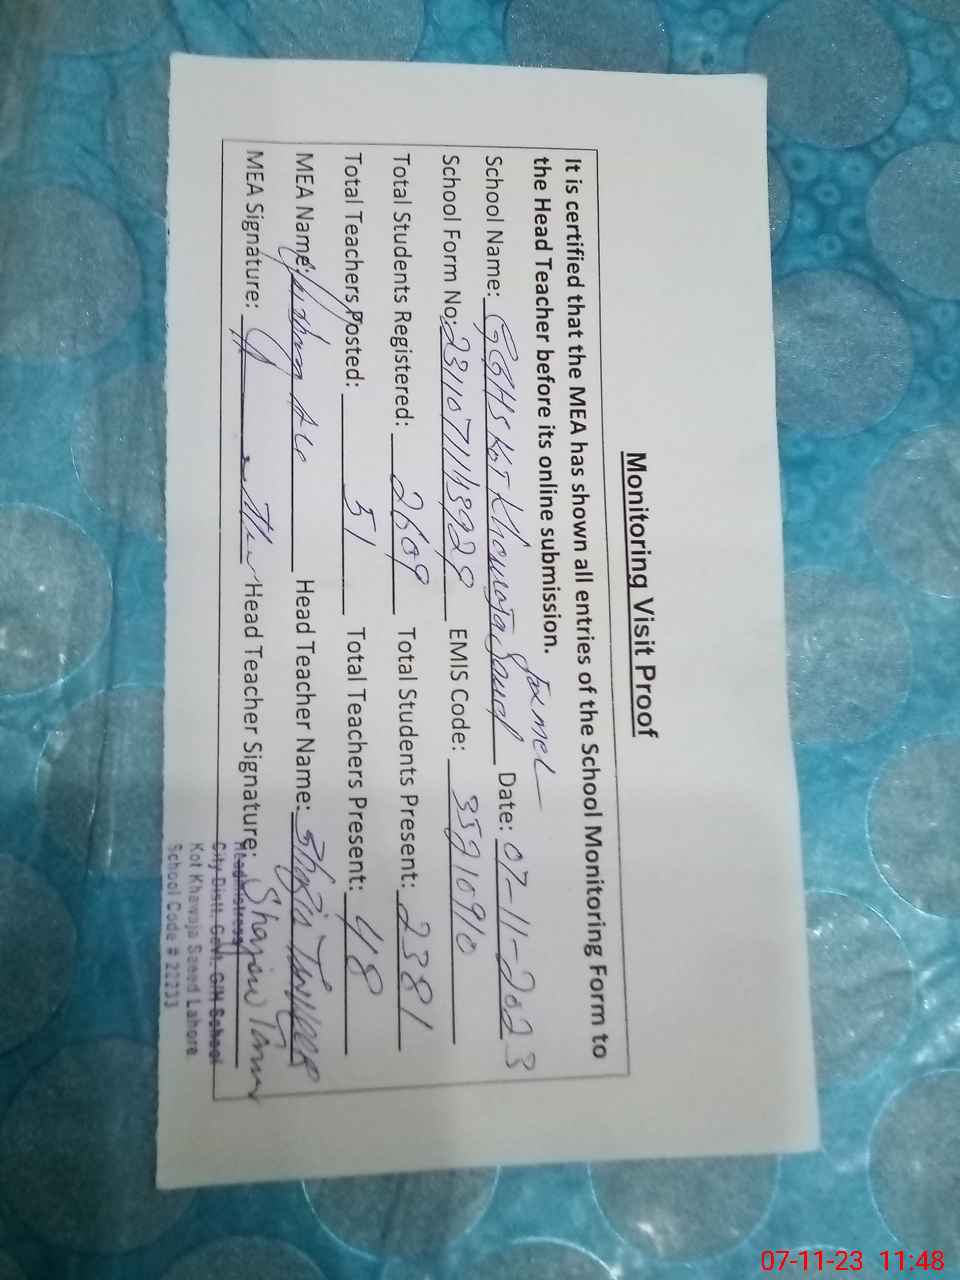 Monitoring Visit Proof
It is certified that the MEA has shown all entries of the School Monitoring Form to
the Head Teacher before its online submission.
School Name: GGHS Kot Khawaja Saeed Date: 07-11-2023
School Form No: EMIS Code: 35210910
Total Students Registered: 2609 Total Students Present: 2381
Total Teachers Posted: 51 Total Teachers Present: 48
MEA Name: Head Teacher Name:
MEA Signature: Head Teacher Signature:
Headmistress
City Distt. Govt. G/H School
Kot Khawaja Saeed Lahore
School Code # 22233
07-11-23 11:48